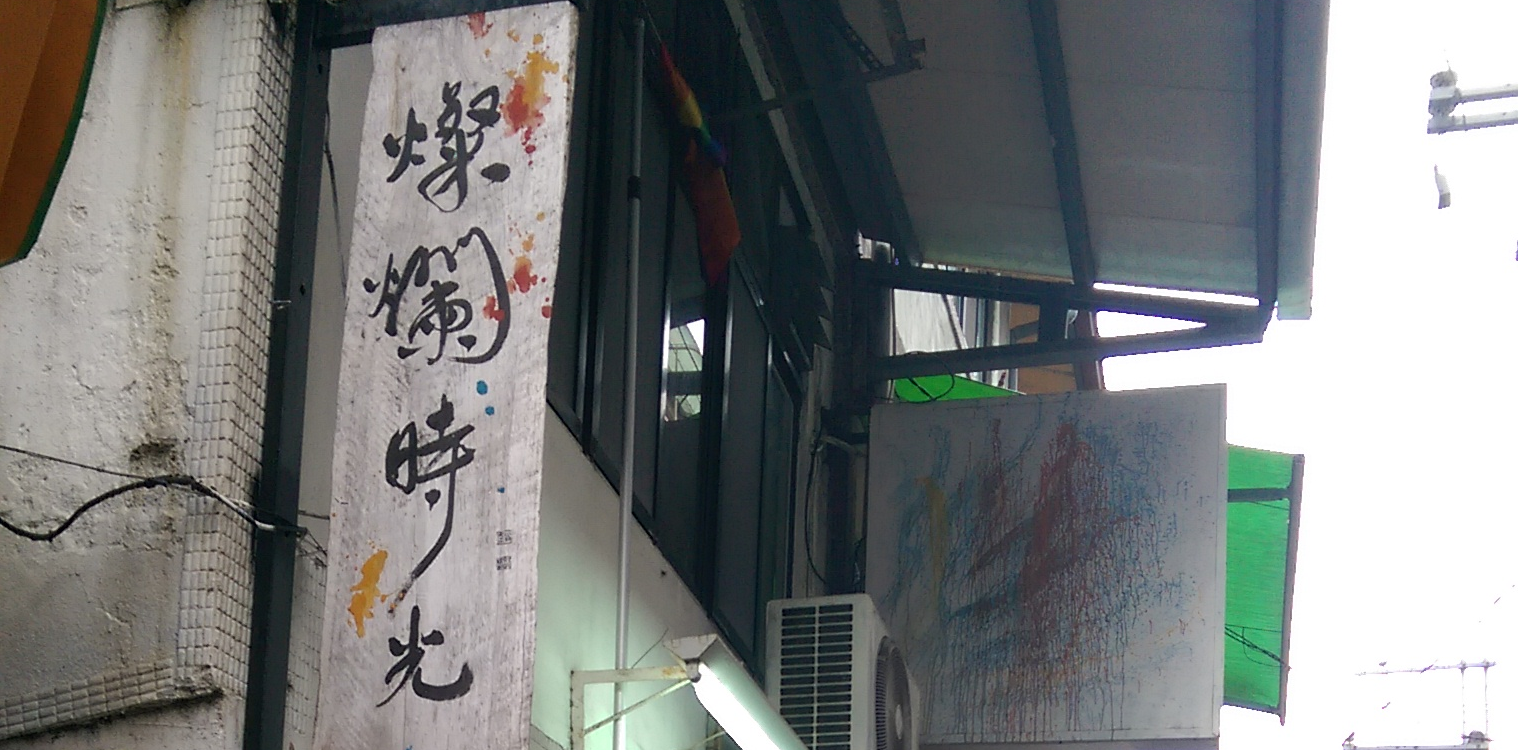 燦爛時光